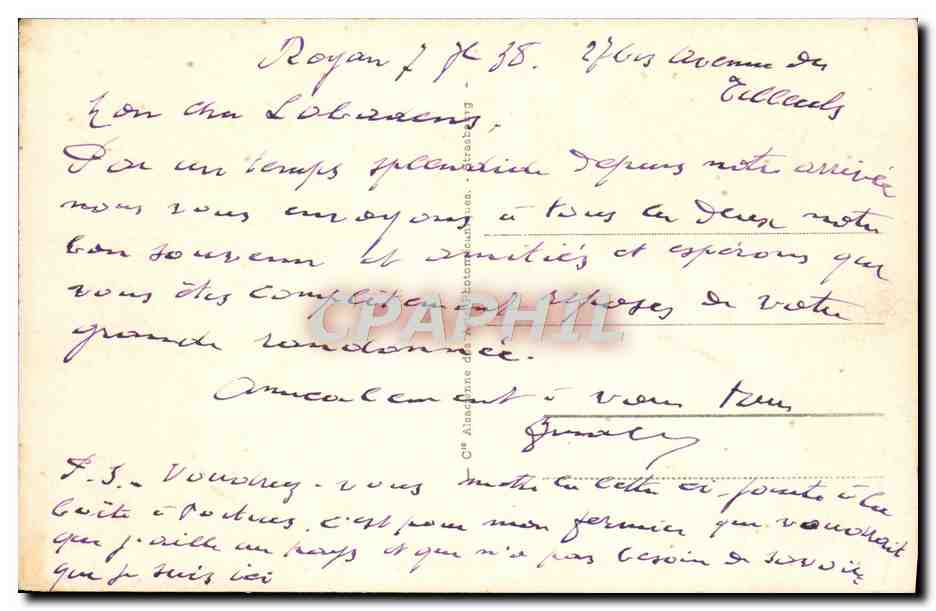 Royan 7 38. 27bis Avenue des
Tilleuls
Mon cher
Par un temps splendide depuis notre arrivée
nous vous envoyons à tous les deux notre
bon souvenir et amitiés et espérons que
vous êtes complètement reposés de votre
grande randonnée.
Amicalement à vous tous
P.S. - Voudrez-vous mettre la lettre ci-jointe à la
boîte à c'est pour mon fermier qui voudrait
que j'aille au pays et qui n'a pas besoin de savoir
que je suis ici
Cie Alsacienne des Arts Photomécaniques. - Strasbourg -
CPAPHIL